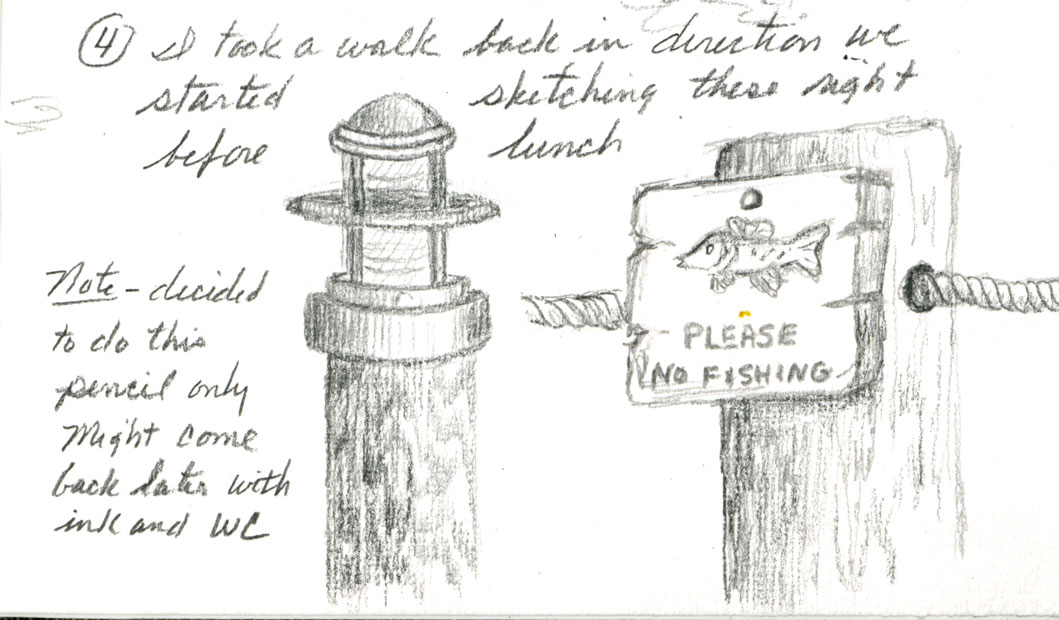 ④ I took a walk back in direction we
started sketching these right
before lunch
Note - decided
to do this
pencil only
Might come
back later with
ink and WC
PLEASE
NO FISHING